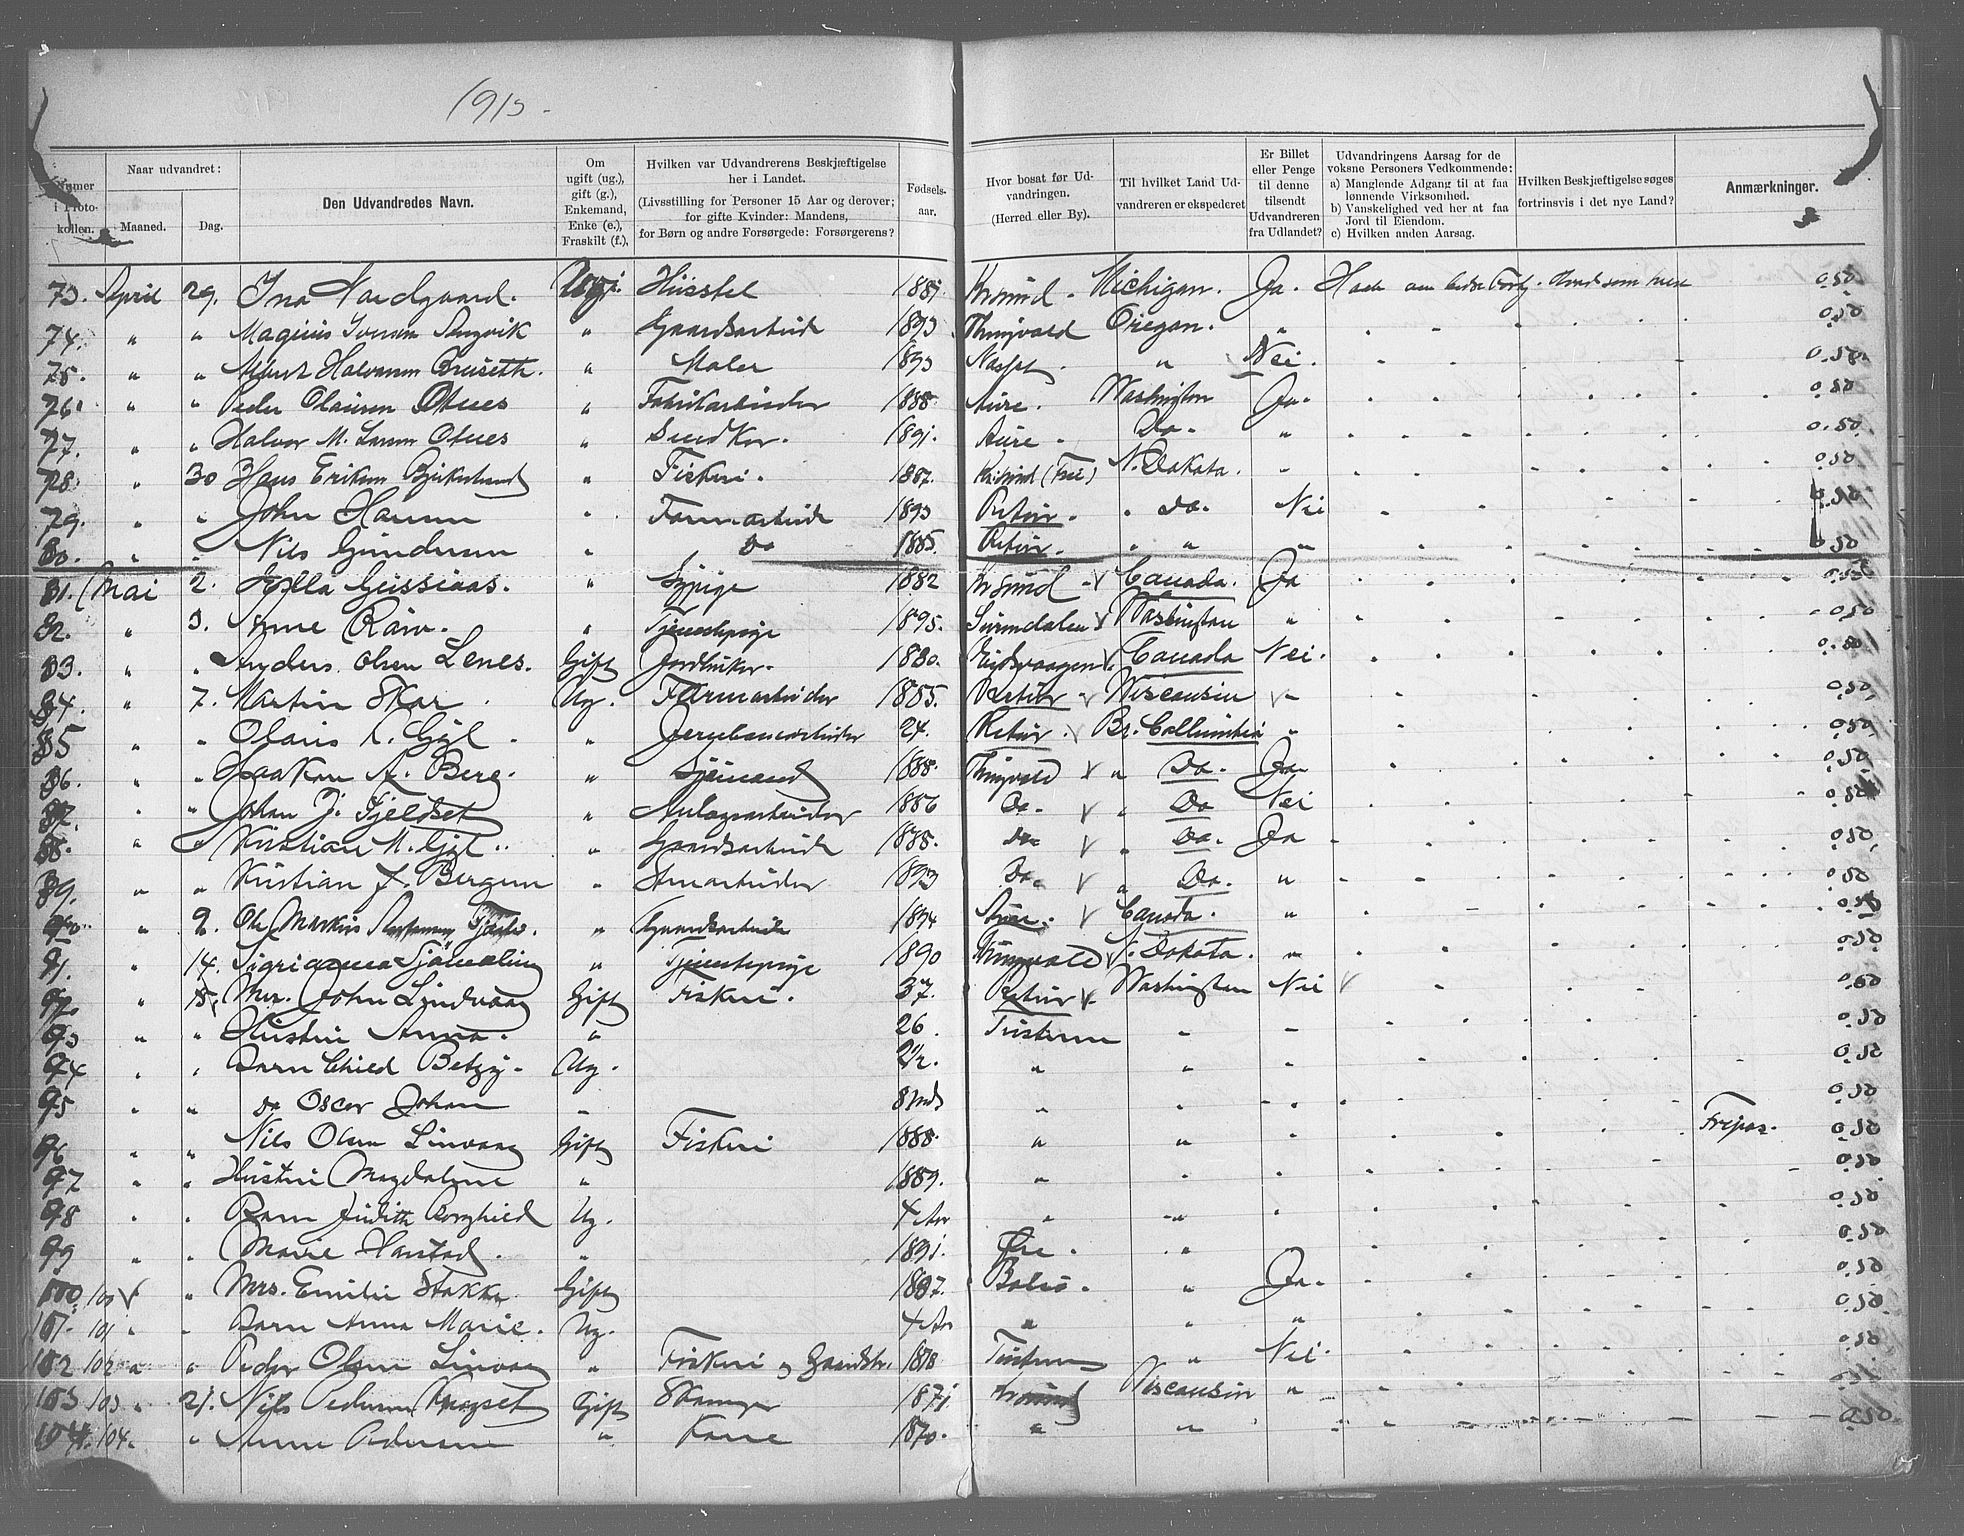 1913.
Numer i Proto-kollen. Naar udvandret: Maaned. Dag. Den Udvandredes Navn. Om ugift (ug.), gift (g.), Enkemand, Enke (e.), Fraskilt (f.), Hvilken var Udvandrerens Beskjæftigelse her i Landet. (Livsstilling for Personer 15 Aar og derover; for gifte Kvinder: Mandens, for Børn og andre Forsørgede: Forsørgerens? Fødsels-aar. Hvor bosat før Ud-vandringen. (Herred eller By). Til hvilket Land Ud-vandreren er ekspederet Er Billet eller Penge til denne tilsendt Udvandreren fra Udlandet? Udvandringens Aarsag for de voksne Personers Vedkommende: a) Manglende Adgang til at faa lønnende Virksomhed. b) Vanskelighed ved her at faa Jord til Eiendom. c) Hvilken anden Aarsag. Hvilken Beskjæftigelse søges fortrinsvis i det nye Land? Anmærkninger.
73. April 29. Ina Nordgaard. Husstel Krsund. Michigan. Ja. Haab om bedre Fortj. Hvad som helst 0.50
74. " " Magnus Iversen " Gaardsarbeide 1893 Thingvold Oregon. " 0.50
75. " " Halvorsen Bruseth. " Maler 1893 Nesset " Nei. 0.50
76. " " Peder Olausen Otnes " Fabrikarbeider 1888. Aure. Washington Ja. 0.50
77. " " Halvor M. Larsen Otnes " 1891. Aure. Do. " 0.50
78. " 30 Hans Eriksen " Fiskeri. 1887. Krsund (Frei) N. Dakota. " 0.50
79. " " John Hansen " Farmarbeide 1893 Retur. " Do. Nei 0.50
80. " " Nils Gundersen " Do 1885. Retur. " " " 0.50
81. Mai 2. " Sypige 1882 Krsund Canada. Ja 0.50
82. " 3. Anne " Tjenestepige 1895. Surendalen Washington " 0.50
83. " " Anders Olsen Lenes. Gift Jordbruker. 1880. Eidsvaagen Canada Nei. 0.50
84. " 7. Martin Skar. Ug. Farmarbeider 1885. Retur Wiscansin 0.50
85 " " Olaus L. Gjøl. " Jernbanearbeider 24. Retur. Br. Collumbia " 0.50
86. " " Haakon A. Berg. " Sjømand 1888. Thingvold " Do. Ja 0.50
87. " " Johan J. Fjeldset " Anlægsarbeider 1886 Do. " Do Nei 0.50
88. " " Kristian M. Gjøl. " Gaardsarbeide 1888. Do " Do. Ja 0.50
89. " " Kristian J. Bergem " 1893 Do. " Do. " 0.50
90. " 9. Ole Markus " Gaardsarbeide 1894 Aure. Canada. " 0.50
91. " 14. " Tjenestepige 1890 Thingvold N. Dakota. " 0.50
92. " 15. Mr. John Lindvaag Gift Fiskeri. 37. Retur Washington Nei 0.50
93 " " Hustru Anna. " 26. Tustern " 0.50
94 " " Barn Child Betzy. Ug. 2 1/2. " " 0.50
95 " " Do Oscar Johan " 8 Mnd " " 0.50
96 " " Nils Olsen Linvaag Gift Fiskeri 1888. " " Fripas. 0.50
97 " " Hustru Magdalene " 1889. " " 0.50
98 " " Barn Judith Borghild Ug. 4 Aar " " 0.50
99 " " Marie Harstad. " 1891. Øre. " 0.50
100 100 " " Mrs. Emilie Stokke Gift 1887. Bolsø. " Ja. 0.50
101. 101 " " Barn Anna Marie. Ug. 4 Aar " " " 0.50
102 102 " " Peder Olsen Linvaag " Fiskeri og Gaardsbr. 1878 Tustern " Nei. 0.50
103 103 " 21. Nils Pedersen Gift 1871 Krsund Wiscansin "
104. 104. " Anne Pedersen " Kone 1870. " " 0.50